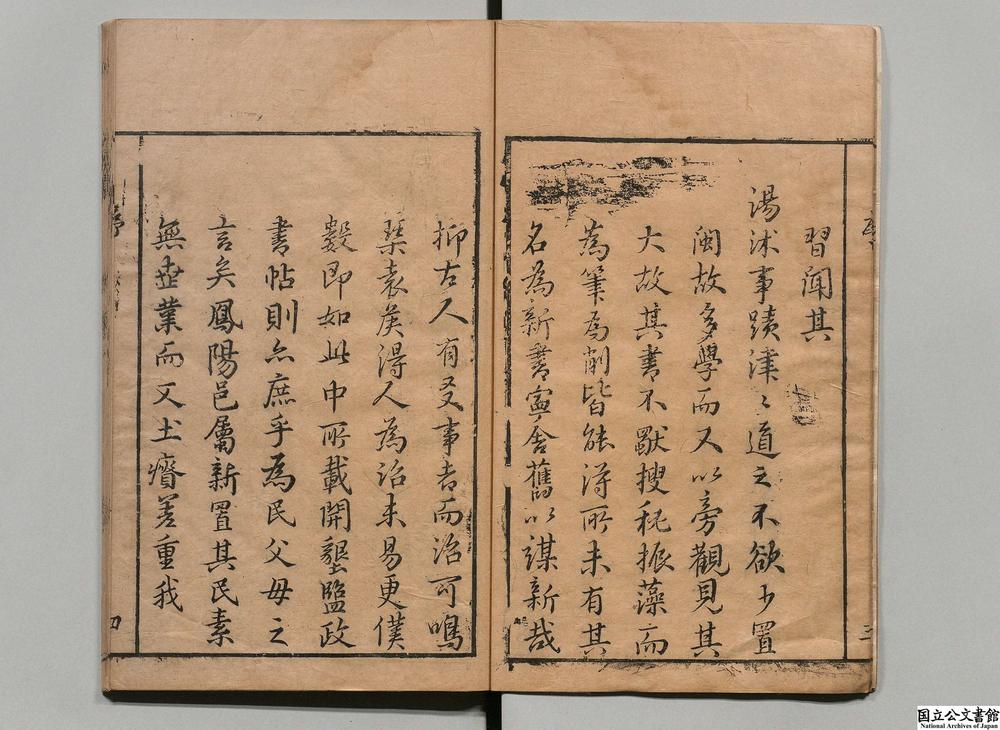 習聞其
湯沭事蹟津〻道之不欲少置
閩故多學而又以旁觀見其
大故其書不厭搜秏振藻而
為筆為削皆能得所未有其
名為新書寧舍舊以謀新哉
抑古人有受事者而治可鳴
琹袁羙得人為治未易更僕
數即如此中所載開墾監政
書帖則亦庶乎為民父母之
言矣鳳陽邑屬新置其民素
無世業而又土瘠差重我
序
四
三
国立公文書館
National Archives of Japan